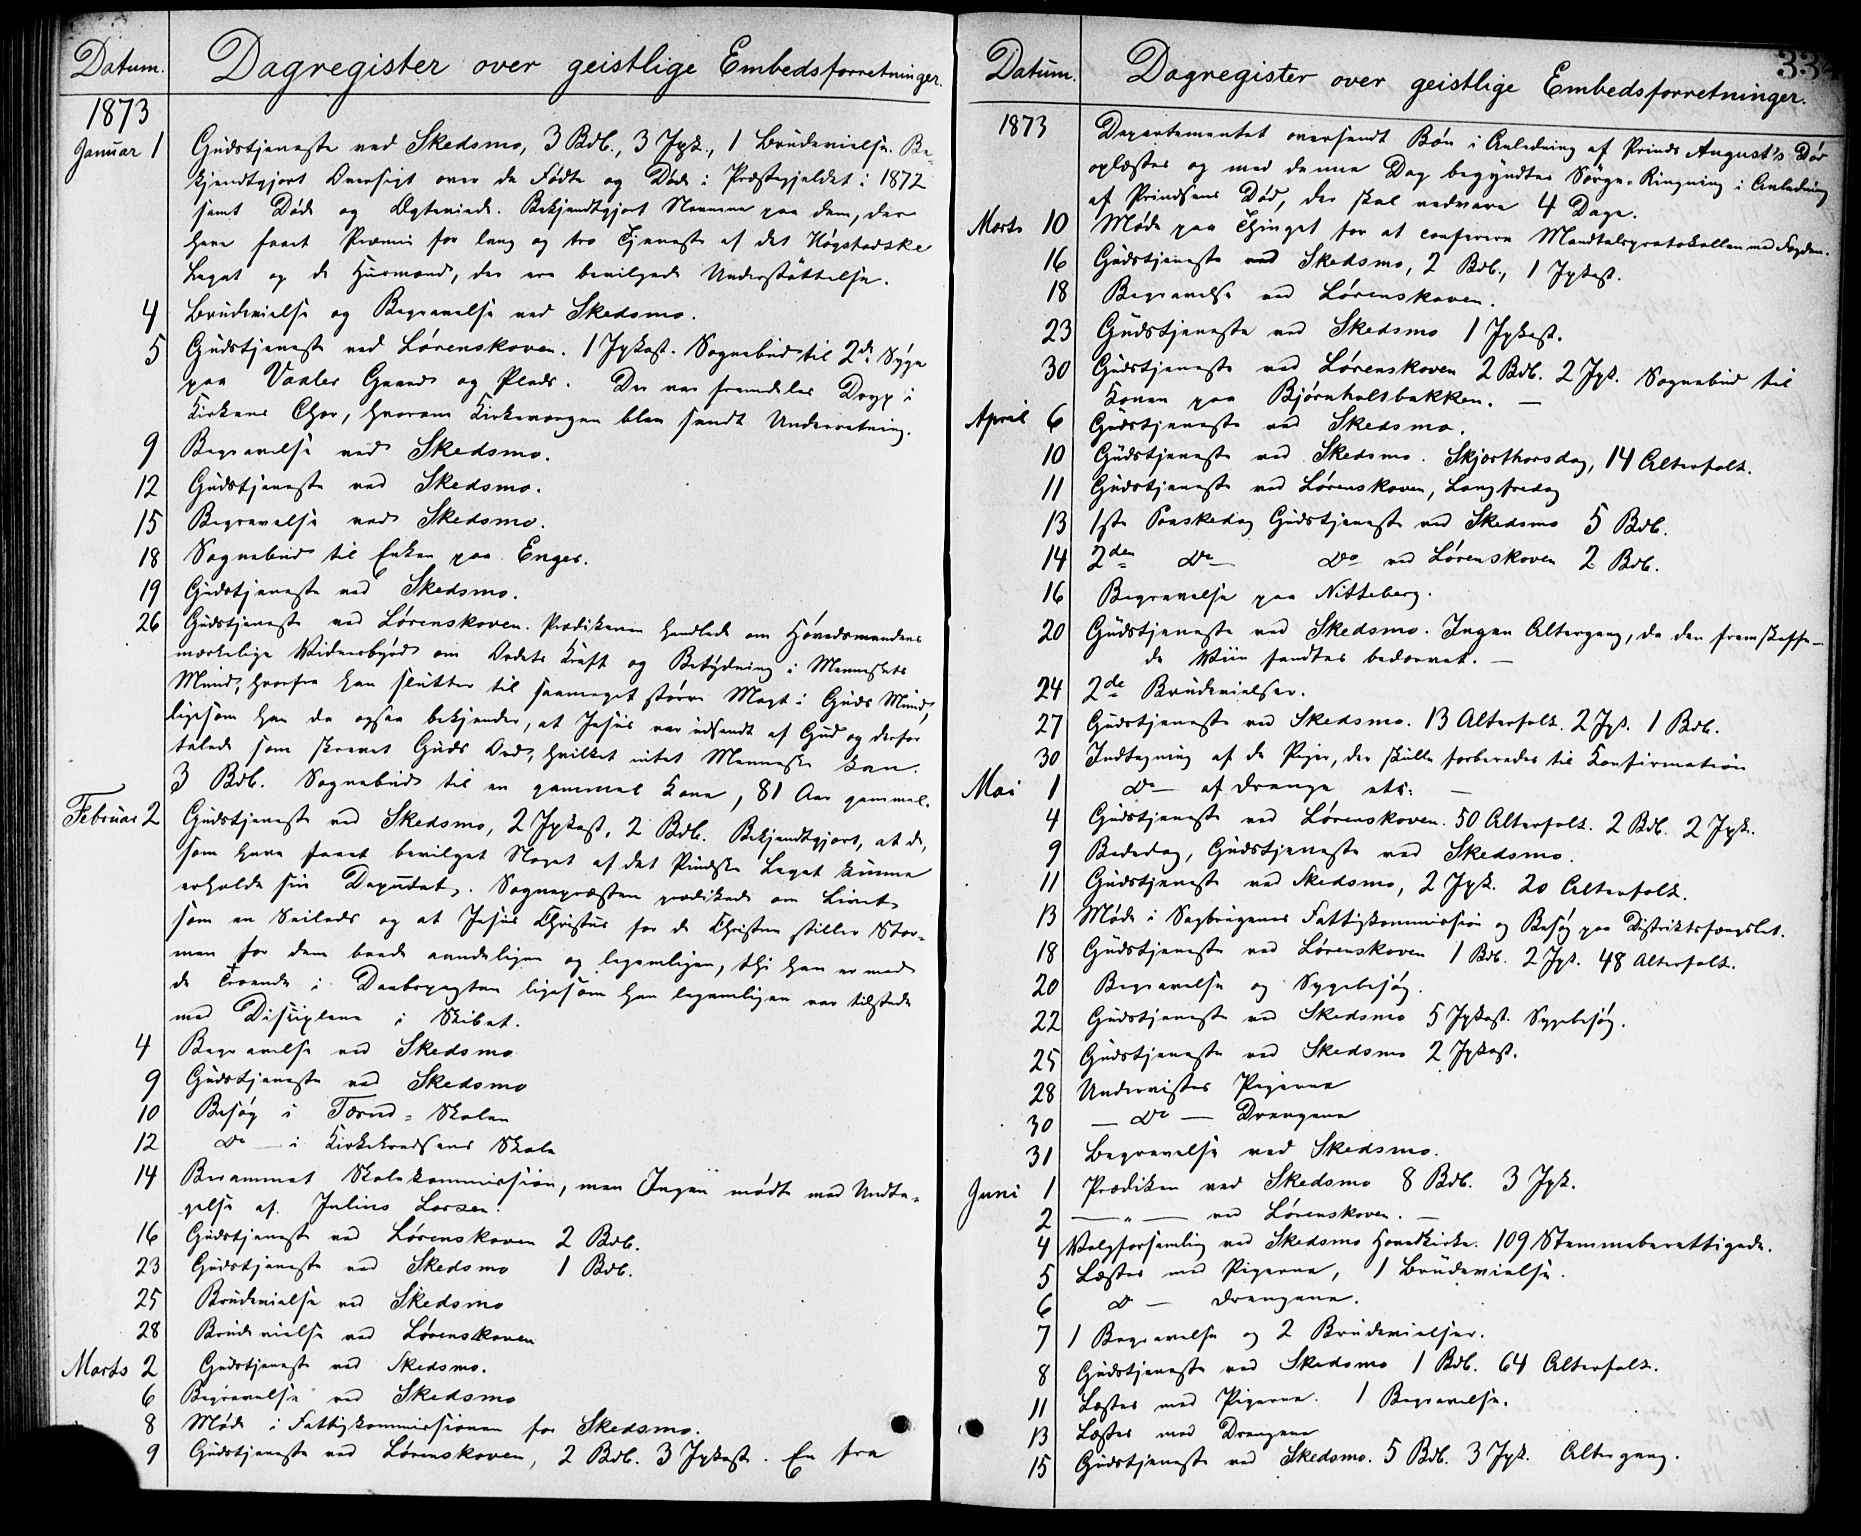 Datum. Dagregister over geistlige Embedsforretninger.
1873
Januar 1 Gudstjeneste ved Skedsmo, 3 Bdb., 3 Jgk., 1 Brudevielse. Be-
kjendtgjort Oversigt over de Fødte og Døde i Præstegjeldet i 1872
samt Døde og Ægteviede. Bekjendtgjort Navnene paa dem, der
have faaet Præmie for lang og tro Tjeneste af det Høgstadske
Legat og de Husmænd, der ere bevilgede Understøttelse.
4 Brudevielse og Begravelse ved Skedsmo.
5 Gudstjeneste ved Lørenskoven. 1 Jgkast. Sognebud til 2de Syge
paa Vaaler Gaard og Plads. Der var fremdeles Dryp i
Kirkens Chor, hvorom Kirkeværgen blev sendt Underretning.
9 Begravelse ved Skedsmo.
12 Gudstjeneste ved Skedsmo.
15 Begravelse ved Skedsmo.
18 Sognebud til Enken paa Enger.
19 Gudstjeneste ved Skedsmo.
26 Gudstjeneste ved Lørenskoven. Prædikenen handlede om Høvedsmandens
mærkelige Vidnesbyrd om Ordets Kraft og Betydning i Menneskets
Mund, hvorfra han slutter til saameget større Magt i Guds Mund,
ligesom han da ogsaa bekjender, at Jesus var udsendt af Gud og derfor
talede som skrevet Guds Ord, hvilket intet Menneske kan.
3 Bdb. Sognebud til en gammel Kone, 81 Aar gammel.
Februar 2 Gudstjeneste ved Skedsmo, 2 Jgkast, 2 Bdb. Bekjendtgjort, at de,
som have faaet bevilget Noget af det Legat kunne
erholde sin Deputat. Sognepræsten prædikede om Livet
som en Seilads og at Jesus Christus for de Christne stiller Stor-
men for dem baade aandeligen og legemligen, thi han er med
de Troende i Daabspagten ligesom han legemligen var tilstede
med Disciplene i Skibet.
4 Begravelse ved Skedsmo
9 Gudstjeneste ved Skedsmo
10 Besøg i Tærud-Skolen
12 Do — i Kirkekredsens Skole
14 Berammet Skolekommission, men Ingen mødte med Undta-
gelse af Julius Larsen.
16 Gudstjeneste ved Lørenskoven 2 Bdb.
23 Gudstjeneste ved Skedsmo 1 Bdb.
25 Brudevielse ved Skedsmo
28 Brudevielse ved Lørenskoven
Marts 2 Gudstjeneste ved Skedsmo.
6 Begravelse ved Skedsmo
8 Møde i Fattigkommissionen for Skedsmo.
9 Gudstjeneste ved Lørenskoven, 2 Bdb. 3 Jgkast. En fra
Datum. Dagregister over geistlige Embedsforretninger. 334
1873 Departementet oversendt Bøn i Anledning af Prinds August's Død
oplæstes og med denne Dag begyndtes Sørge-Ringning i Anledning
af Prindsens Død, der skal vedvare 4 Dage.
Marts 10 Møde paa Thinget for at conferere Mandtalsprotokollen med Fogden.
16 Gudstjeneste ved Skedsmo, 2 Bdb., 1 Jgkast.
18 Begravelse ved Lørenskoven.
23 Gudstjeneste ved Skedsmo 1 Jgkast.
30 Gudstjeneste ved Lørenskoven 2 Bdb. 2 Jgk. Sognebud til
Konen paa Bjørnholtsbakken. —
April 6 Gudstjeneste ved Skedsmo.
10 Gudstjeneste ved Skedsmo. Skjærthorsdag, 14 Alterfolk.
11 Gudstjeneste ved Lørenskoven, Langfredag
13 1ste Paaskedag Gudstjeneste ved Skedsmo 5 Bdb.
14 2den Do — Do ved Lørenskoven 2 Bdb.
16 Begravelse paa Nitteberg.
20 Gudstjeneste ved Skedsmo. Ingen Altergang, da den fremskaffe-
de Viin fandtes bedærvet. —
24 2de Brudevielser.
27 Gudstjeneste ved Skedsmo. 13 Alterfolk. 2 Jgk. 1 Bdb.
30 Indtegning af de Piger, der skulle forberedes til Konfirmation
Mai 1 Do — af Drenge etc: —
4 Gudstjeneste ved Lørenskoven. 50 Alterfolk. 2 Bdb. 2 Jgk.
9 Bededag, Gudstjeneste ved Skedsmo.
11 Gudstjeneste ved Skedsmo, 2 Jgk. 20 Alterfolk.
13 Møde i Sagbrugenes Fattigkommission og Besøg paa Distriktsfængslet.
18 Gudstjeneste ved Lørenskoven 1 Bdb. 2 Jgk. 48 Alterfolk.
20 Begravelse og Sygebesøg.
22 Gudstjeneste ved Skedsmo 5 Jgkast. Sygebesøg.
25 Gudstjeneste ved Skedsmo 2 Jgkast.
28 Undervistes Pigerne
30 — Do — Drengene
31 Begravelse ved Skedsmo.
Juni 1 Prædiken ved Skedsmo 8 Bdb. 3 Jgk.
2 — „ — ved Lørenskoven. —
4 Valgforsamling ved Skedsmo Hovedkirke. 109 Stemmeberettigede.
5 Læstes med Pigerne, 1 Brudevielse.
6 Do — Drengene.
7 1 Begravelse og 2 Brudevielser.
8 Gudstjeneste ved Skedsmo 1 Bdb. 64 Alterfolk.
11 Læstes med Pigerne. 1 Begravelse.
13 Læstes med Drengene
15 Gudstjeneste ved Skedsmo. 5 Bdb. 3 Jgk. Altergang.